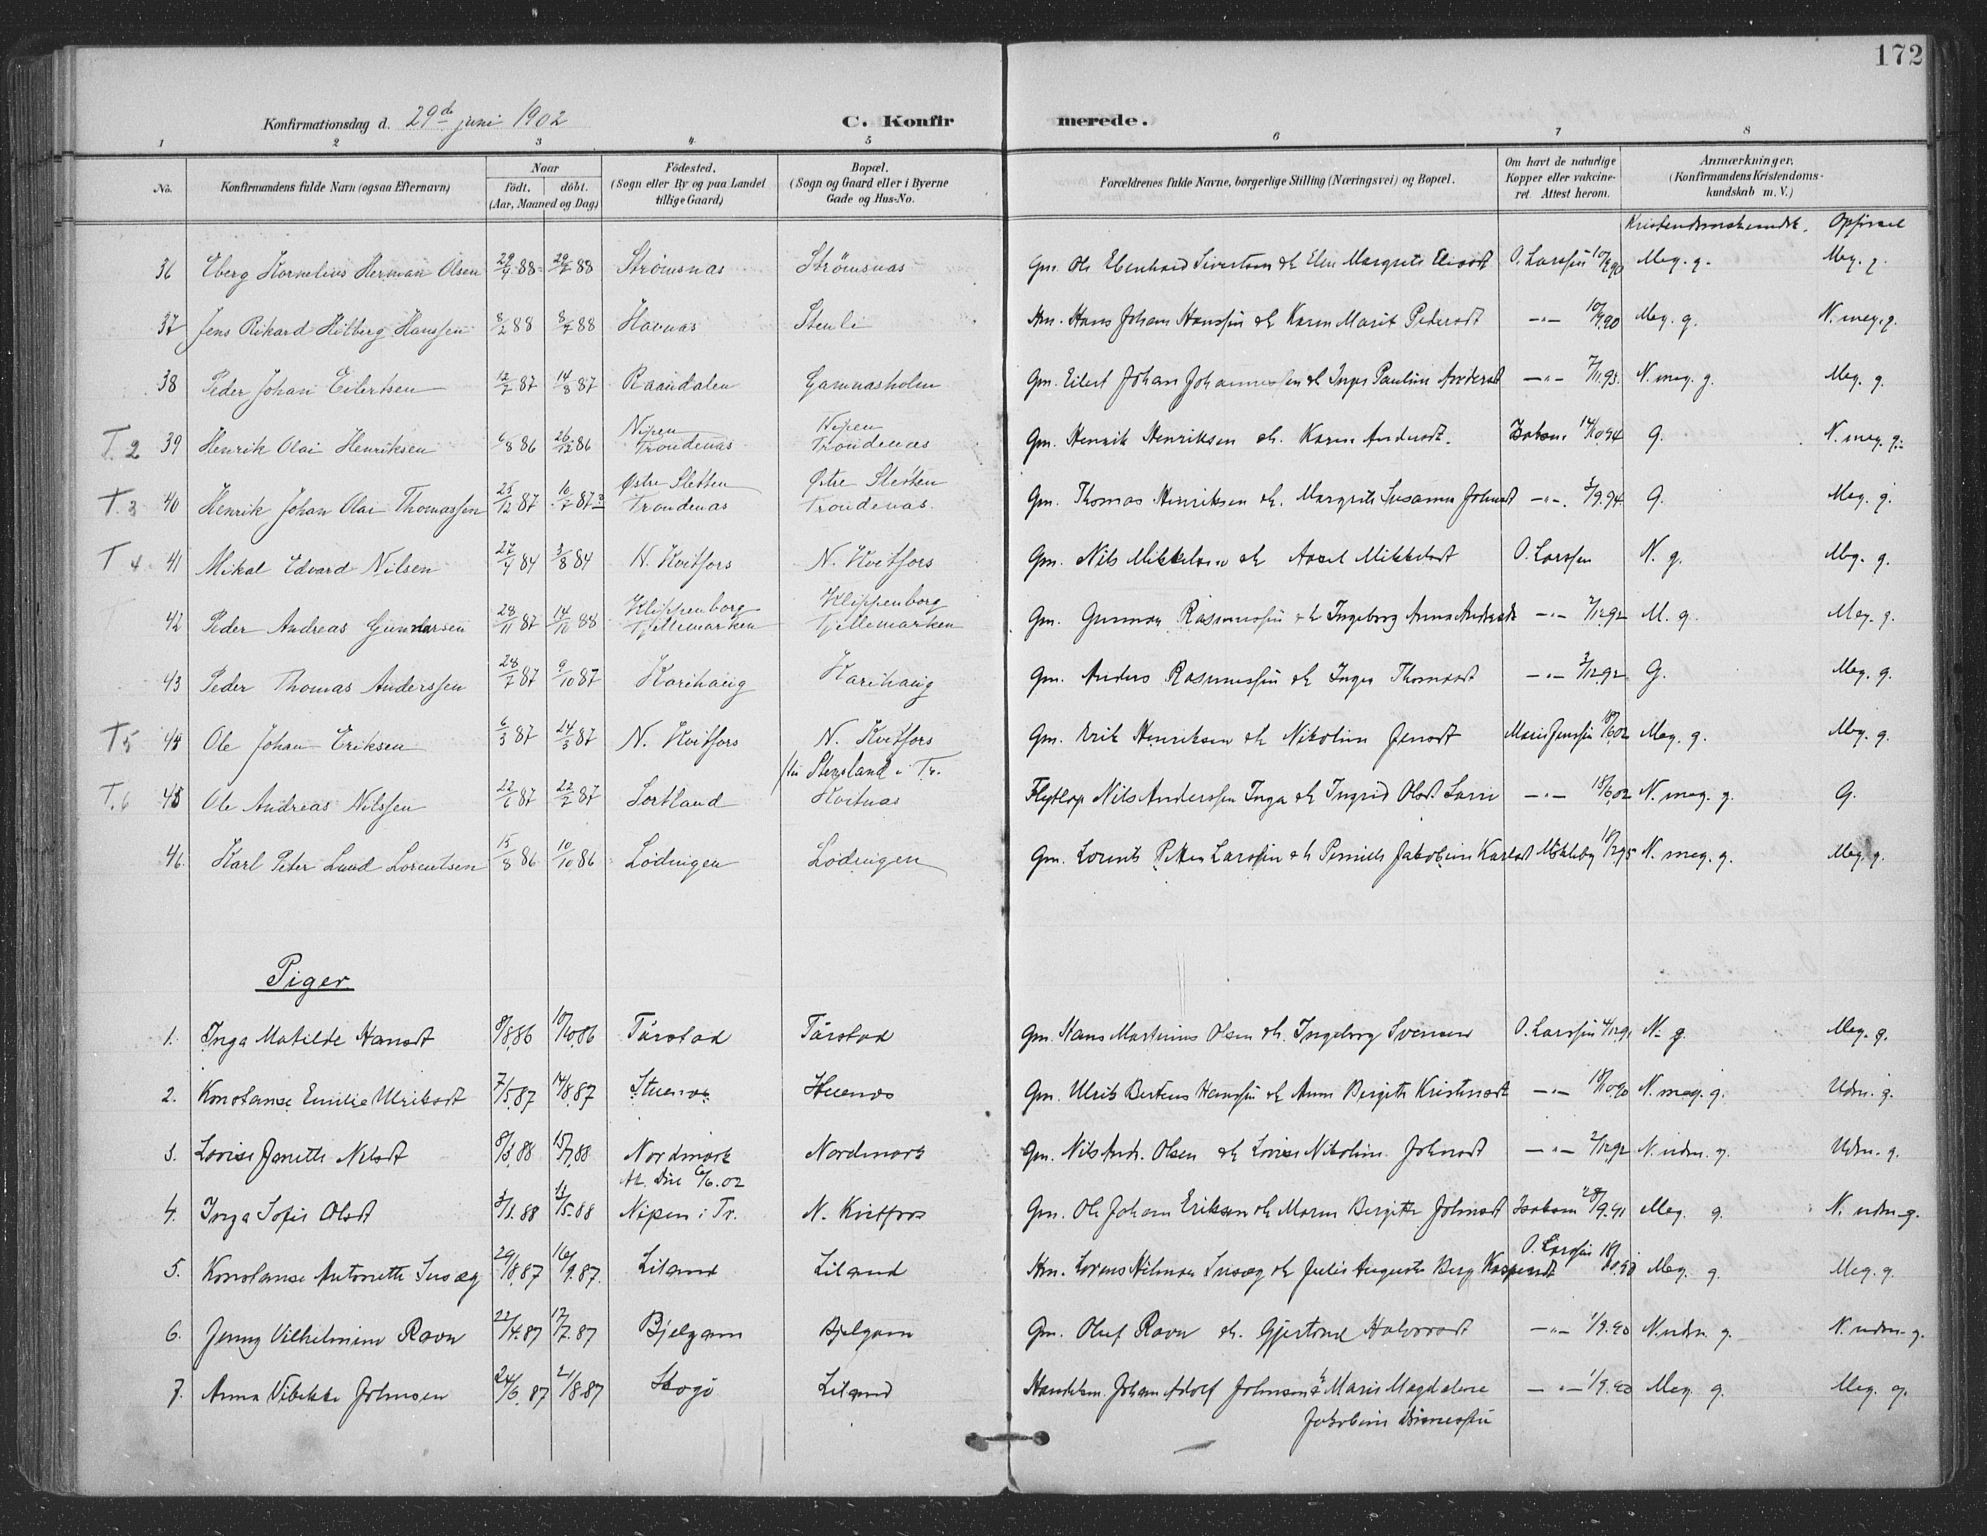 172
Konfirmationsdag d. 29de juni 1902 C. Konfirmerede.
1 2 3 4 5 6 7 8
No. Konfirmandens fulde Navn (ogsaa Efternavn) Naar födt. döbt. (Aar, Maaned og Dag) Födested. (Sogn eller By og paa Landet tillige Gaard) Bopæl. (Sogn og Gaard eller i Byerne Gade og Hus-No. Forældrenes fulde Navne, borgerlige Stilling (Næringsvei) og Bopæl. Om havt de naturlige Kopper eller vakcineret Attest herom. Anmærkninger. (Konfirmandens Kristendomskundskab m. V.)
Kristendomskundsk. Opførsel
36 Eberg Kornelius Herman Olsen 88 88 Strømsnas Strømsnas Gm. Ole Ebenhard Sivertsen & Elen Margrete O. Larssen Meg. g. Meg. g.
37 Jens Rikard Hilberg Hanssen 8/2 88 88 Havnas Stenli Hans Johan Hanssen & Karen Marit Pedersdt —"— Meg. g. N. meg. g.
38 Peder Johan Eilertsen 87 14/8 87 Raandalen Gamnasholm Gm. Eilert Johan Johannessen & Inger Pauline Andersdt —"— 7/11.93. N. meg. g. Meg. g.
T. 2 39 Henrik Olai Henriksen 6/8 86 26/12 86 Nipen Trondenas Nipen Trondenas Gm. Henrik Henriksen & Karen Andersdt. 14/10.94 g. N. meg. g.
T. 3 40 Henrik Johan Olai Thomassen 25/12 87 Østre Sletten Trondenas Østre Sletten Trondenas. Gm. Thomas Henriksen & Margrete Susanna Johnsdt —"— g. Meg. g.
T 4 41 Mikal Edvard Nilsen 84 3/8 84 N. Kvitfors N. Kvitfors Gm. Nils Mikkelsen & Mikkelsdt O. Larssen N. g. Meg. g.
42 Peder Andreas Gunnarsen 28/11 87 88 Klippenborg Tjellemarken Klippenborg Tjellemarken Gm. Gunnar Rasmussen & Ingeborg Anna Andersdt —"— 2/12.92 M. g. Meg. g.
43 Peder Thomas Anderssen 28/7 87 9/10 87 Karihaug Karihaug Gm. Anders Rasmussen & Inger Thomasdt —"— 3/12.92. G. Meg. g.
T 5 44 Ole Johan Eriksen 6/3 87 24/3 87 N. Kvitfors N. Kvitfors Gm. Erik Henriksen & Nikoline Jensdt Marie Jenssen 18/6.02 Meg. g. Meg. g.
Stensland i Tr.
T. 6 45 Ole Andreas Nilssen 87 87 Sortland Kvitnas Flytlap Nils Anderssen Inga & Ingrid Olsdt. —"— 18/6.02 N. meg. g. G.
46. Karl Peter Lund Lorentsen 15/8 86 10/10 86 Lødingen Lødingen Gm. Lorents Petter Larssen & Pernille Jakobine Karlsdt N. meg. g. Meg. g.
Piger
1. Inga Matilde Hansdt 8/8.86 10/10.86 Tårstad Tårstad Gm. Hans Martinius Olsen & Ingeborg O. Larssen 4/12.91 N. g. Meg. g.
2. Konstanse Emilie Ulriksdt 7/5.87 14/8.87 Gm. Ulrik Hanssen & Anna Bergitte Kristensdt —"— 18/10.90 N. meg. g. Udm. g.
3. Lovise Janette Nilsdt 88 15/7.88 Nordmark Nordmark Gm. Nils Andr. Olsen & Lovise Nikoline Johnsdt —"— 2/12.92 N. udm. g. Udm. g.
6/6.02
4. Inga Sofie Olsdt 88 88 Nipen i Tr. N. Kvitfors Gm. Ole Johan Eriksen & Maren Bergitte Johnsdt 28/9.91 Meg. g. N. udm. g.
5. Konstanse Antonette 29/8.87 16/9.87. Liland Liland Lorens Hilmar & Julie Auguste Berg Kaspersdt O. Larssen Meg. g. Meg. g.
6. Jenny Vilhelmine Ravn 22/4.87 17/7.87 Bjelgam Bjelgam Gm. Oluf Ravn & Gjertrud Halvorsdt —"— 1/9.90 N. udm. g. N. udm. g.
7. Anna Vibekke Johnsen 24/6.87 21/8.87 Skogö Liland Handelsm. Johan Adolf Johnsen & Marie Magdalene —"— 1/9.90 Meg. g. Meg. g.
Jakobine